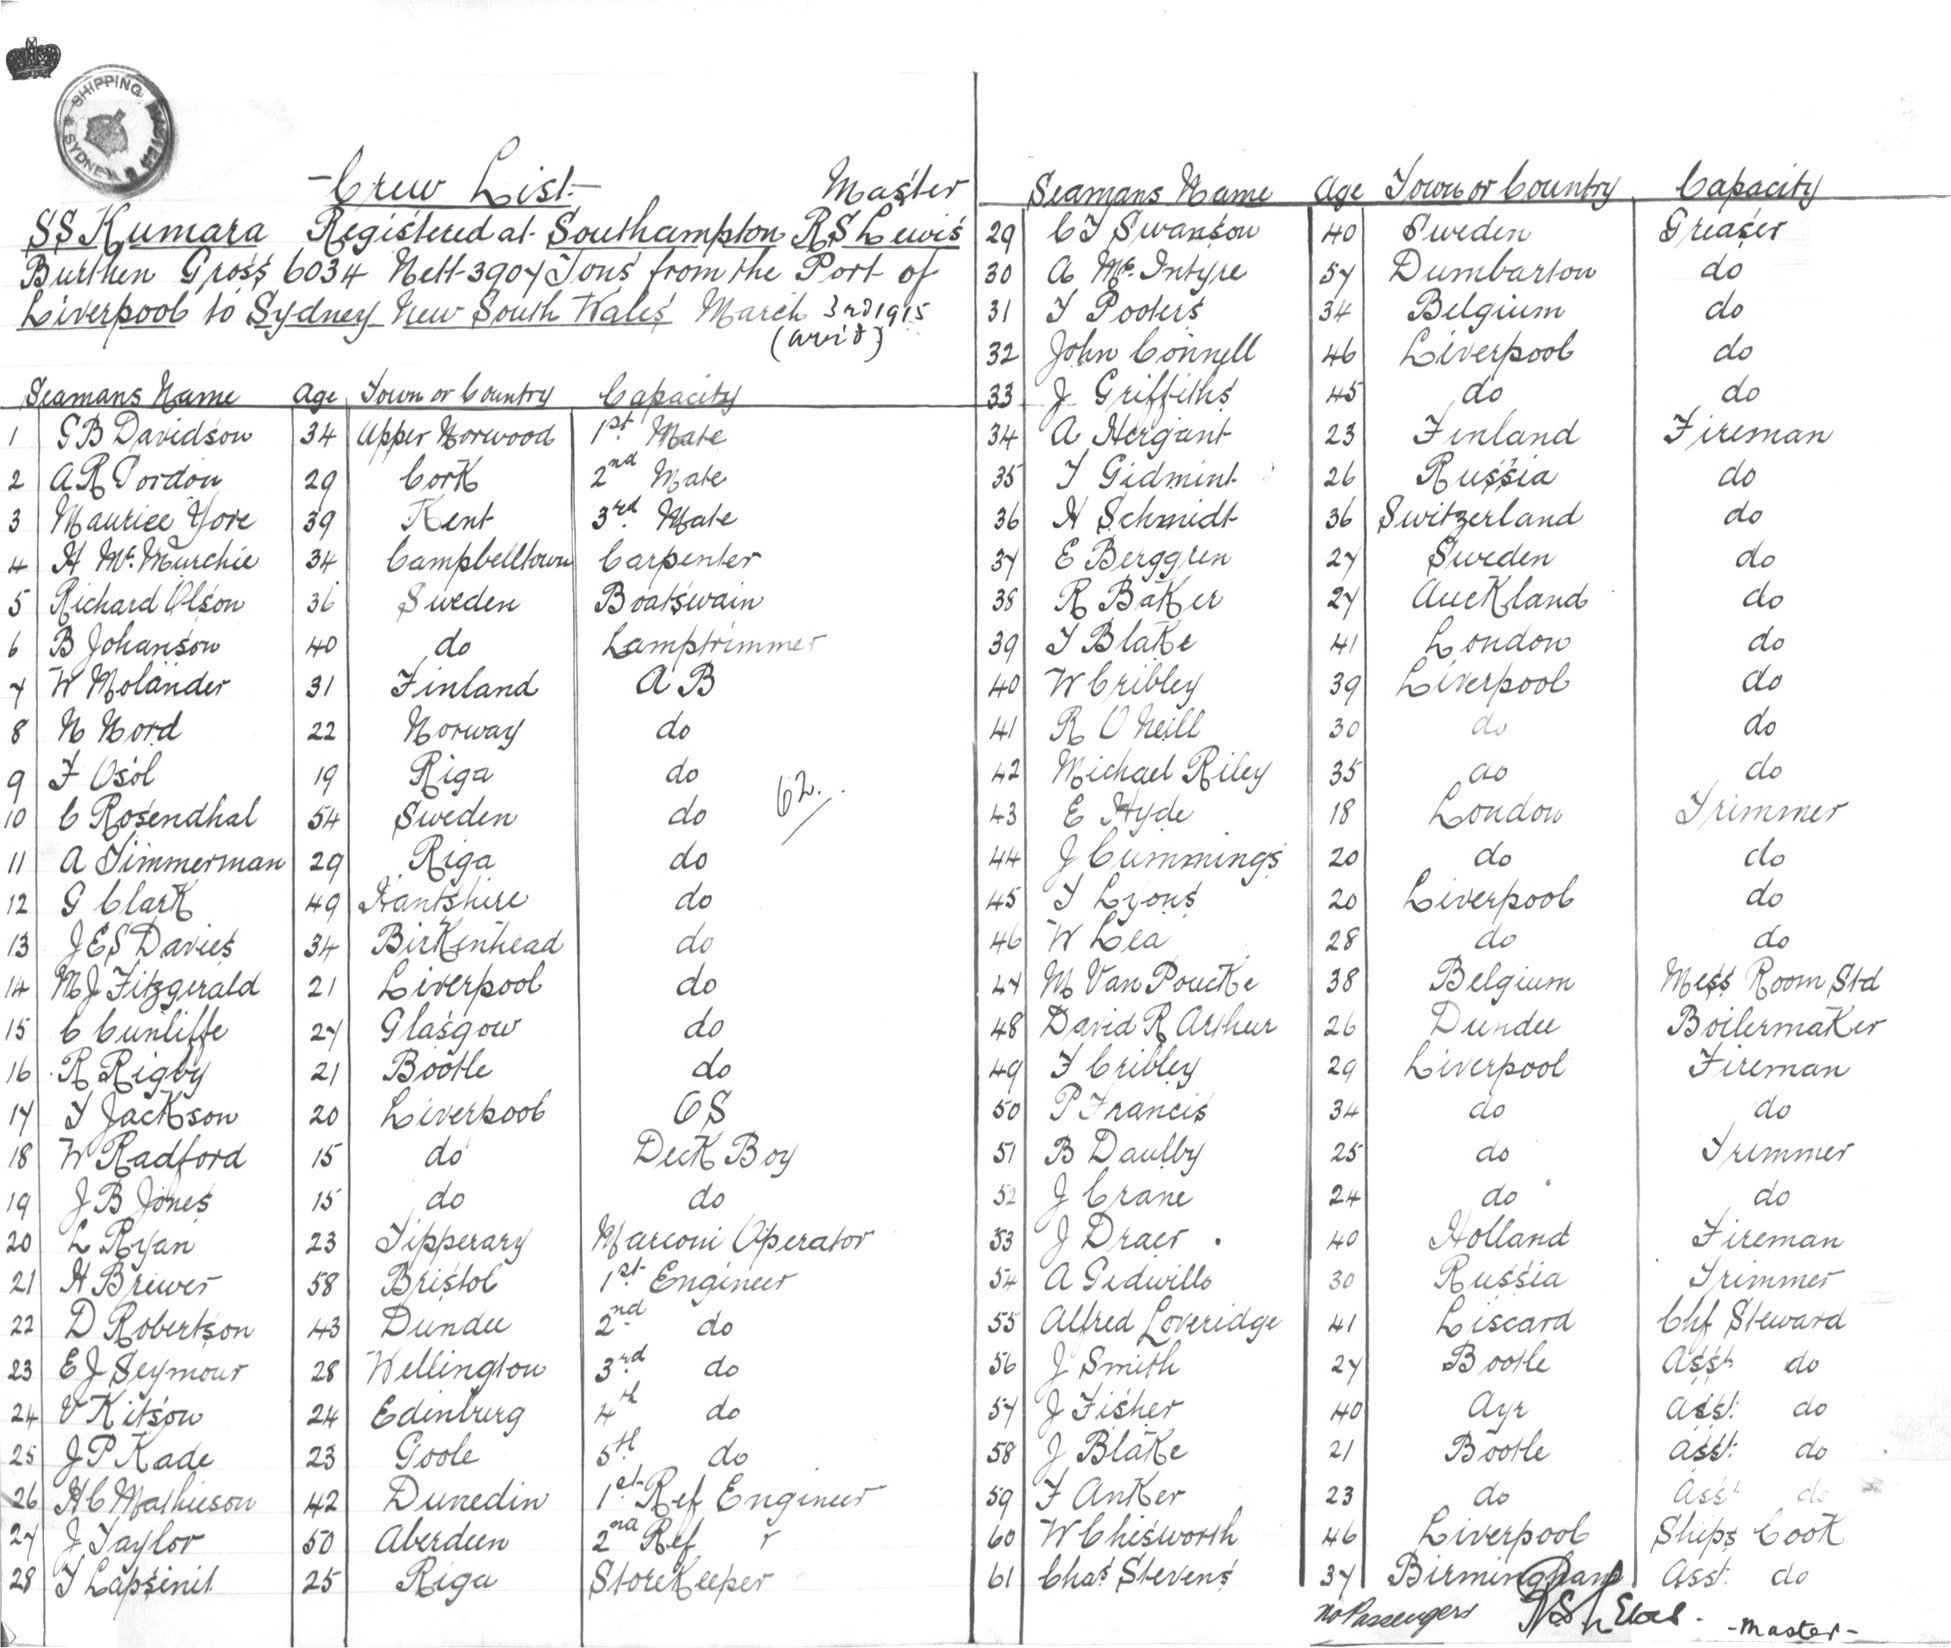 SHIPPING
SYDNEY
-Crew List- Master
SS Kumara Registered at Southampton R S Lewis
Burthen Gross 6034 Nett 3907 Tons from the Port of
Liverpool to Sydney New South Wales March 3rd 1915
(arvd)
Seamans Name Age Town or Country Capacity
1 G B Davidson 34 Upper Norwood 1st Mate
2 A R Pordon 29 Cork 2nd Mate
3 Maurice Yore 39 Kent 3rd Mate
4 H Mc Murchie 34 Campbelltown Carpenter
5 Richard Olson 36 Sweden Boatswain
6 B Johanson 40 do Lamptrimmer
7 W Molander 31 Finland A B
8 N Nord 22 Norway do
9 F Osol 19 Riga do
62
10 C Rosendhal 54 Sweden do
11 A Timmerman 29 Riga do
12 G Clark 49 Hantshire do
13 J E S Davies 34 Birkenhead do
14 M J Fitzgerald 21 Liverpool do
15 C Cunliffe 27 Glasgow do
16 R Rigby 21 Bootle do
17 T Jackson 20 Liverpool O S
18 W Radford 15 do Deck Boy
19 J B Jones 15 do do
20 L Ryan 23 Tipperary Marconi Operator
21 H Brewer 58 Bristol 1st Engineer
22 D Robertson 43 Dundee 2nd do
23 E J Seymour 28 Wellington 3rd do
24 V Kitson 24 Edinburg 4th do
25 J P Kade 23 Goole 5th do
26 H C Mathieson 42 Dunedin 1st Ref Engineer
27 J Taylor 50 Aberdeen 2nd Ref
28 T Lapsinit 25 Riga Storekeeper
Seamans Name Age Town or Country Capacity
29 C T Swanson 40 Sweden Greaser
30 A Mc Intyre 57 Dumbarton do
31 T Pooters 34 Belgium do
32 John Connell 46 Liverpool do
33 J Griffiths 45 do do
34 A Hergant 23 Finland Fireman
35 T Gidmint 26 Russia do
36 H Schmidt 36 Switzerland do
37 E Berggren 27 Sweden do
38 R Baker 27 Auckland do
39 T Blake 41 London do
40 W Cribley 39 Liverpool do
41 R O Neill 30 do do
42 Michael Riley 35 do do
43 E Hyde 18 London Trimmer
44 J Cummings 20 do do
45 T Lyons 20 Liverpool do
46 W Lea 28 do do
47 M Van Poucke 38 Belgium Mess Room Std
48 David R Arthur 26 Dundee Boilermaker
49 F Cribley 29 Liverpool Fireman
50 P Francis 34 do do
51 B Daulby 25 do Trimmer
52 J Crane 24 do do
53 J Draer 40 Holland Fireman
54 A Gedwillo 30 Russia Trimmer
55 Alfred Loveridge 41 Liscard Chf Steward
56 J Smith 27 Bootle Asst do
57 J Fisher 40 Ayr Asst do
58 J Blake 21 Bootle Asst do
59 F Anker 23 do Asst do
60 W Chisworth 46 Liverpool Ships Cook
61 Chas Stevens 37 Birmingham Asst do
No Passengers R S Lewis -Master-